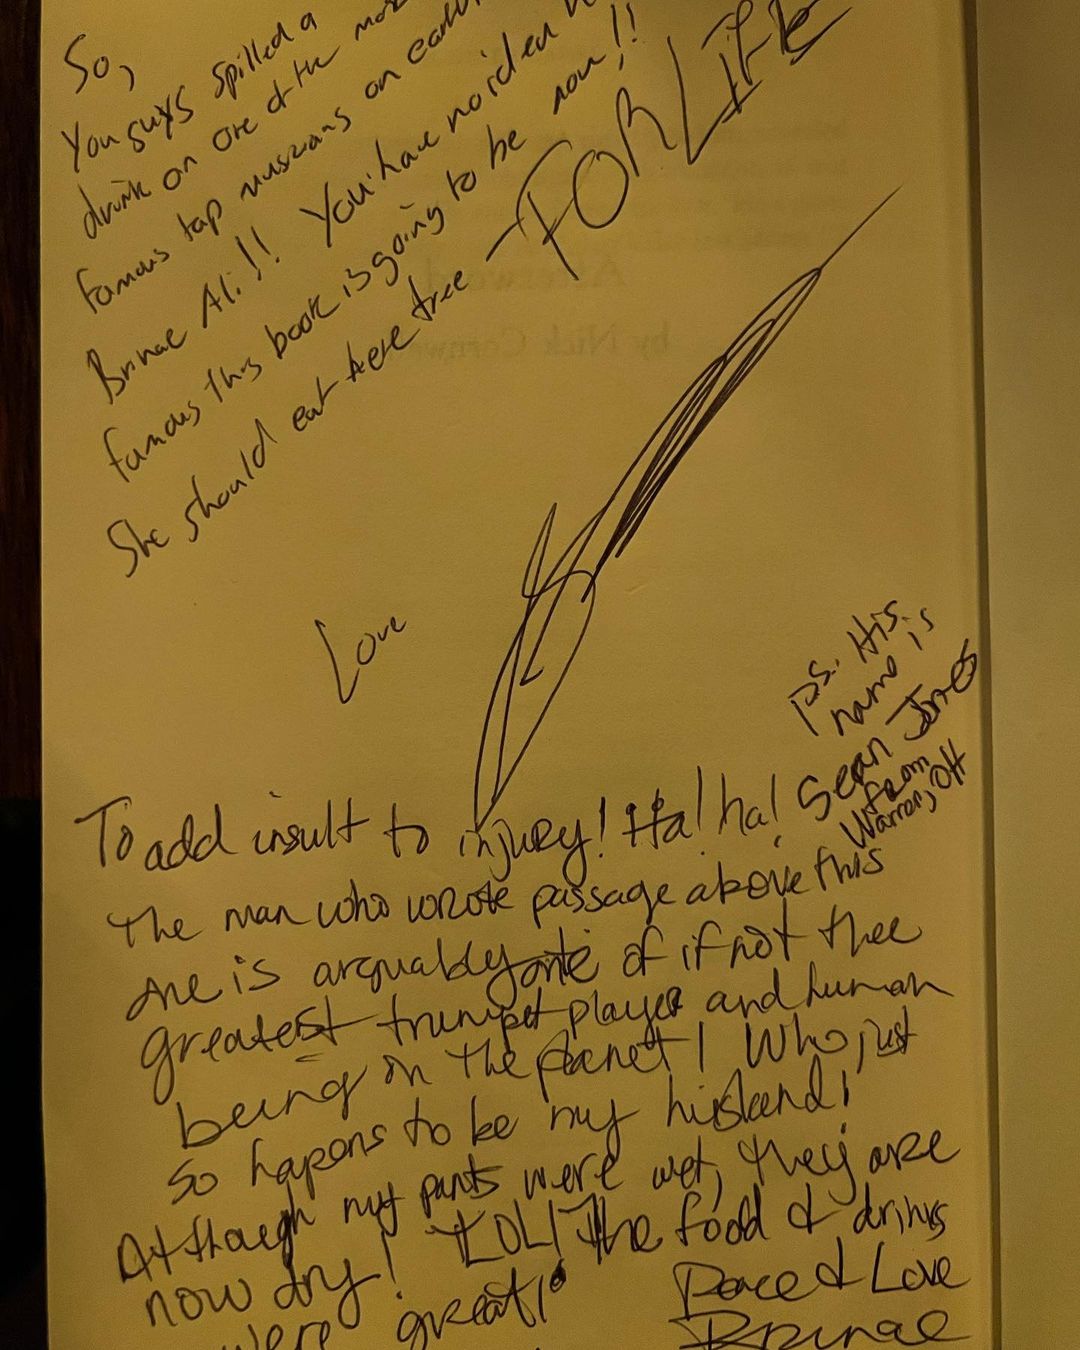 So,
You guys spilled a
drink on one of the most
famous tap musicians on earth
Brinae Ali!! You have no idea how
famous this book is going to be now!!
She should eat here free - FOR LIFE
Love
To add insult to injury! Ha! ha!
The man who wrote passage above this
one is arguably one of if not thee
greatest trumpet player and human
being on the planet! Who just
so hapens to be my husband!
Although my pants were wet, they are
now dry! LOL! The food & drinks
were great!
Peace & Love
Brinae
P.S. His
name is
Sean Jones
from
Warren, OH
Afterword
by Nick Cornwell